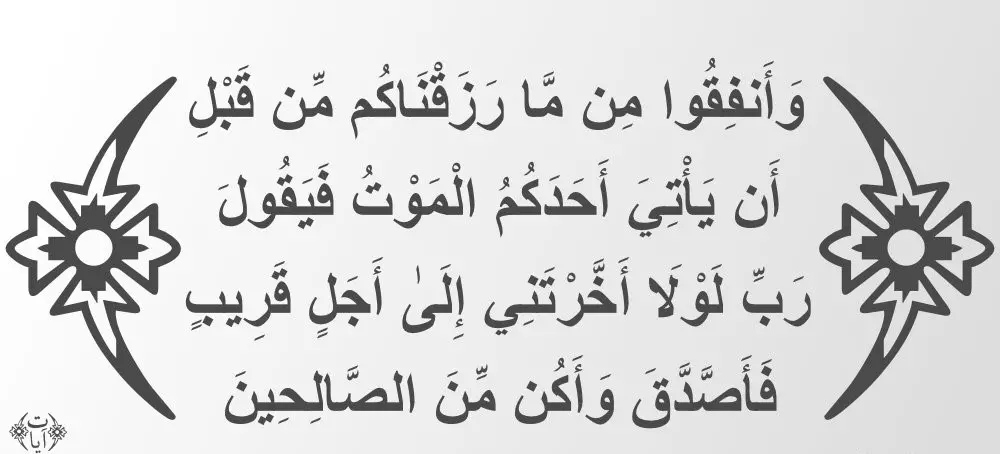 وَأَنفِقُوا مِن مَّا رَزَقْنَاكُم مِّن قَبْلِ
أَن يَأْتِيَ أَحَدَكُمُ الْمَوْتُ فَيَقُولَ
رَبِّ لَوْلَا أَخَّرْتَنِي إِلَىٰ أَجَلٍ قَرِيبٍ
فَأَصَّدَّقَ وَأَكُن مِّنَ الصَّالِحِينَ
آيات